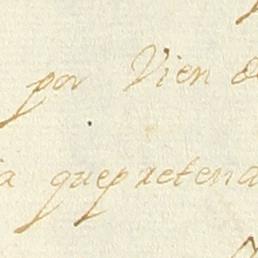 por Vien
quepretend